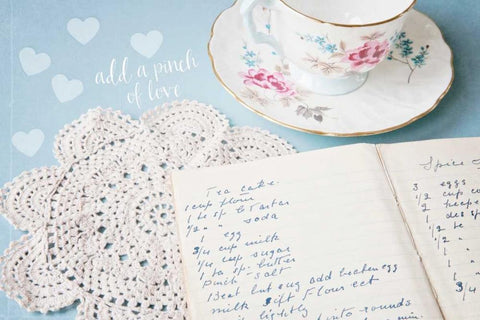 add a pinch
of love
Tea Cake.
1 cup flour
1 tesp C Tartar
1/2 " " soda
1 egg
3/4 cup milk
1/4 cup sugar
1 to sp. butter
Pinch salt
Beat but sug add beaten egg
milk Sift flour ect
lightly into rounds
min.
Spice
3 eggs
1/2 cup
2
1 des
1/2 "
1 "
1/2